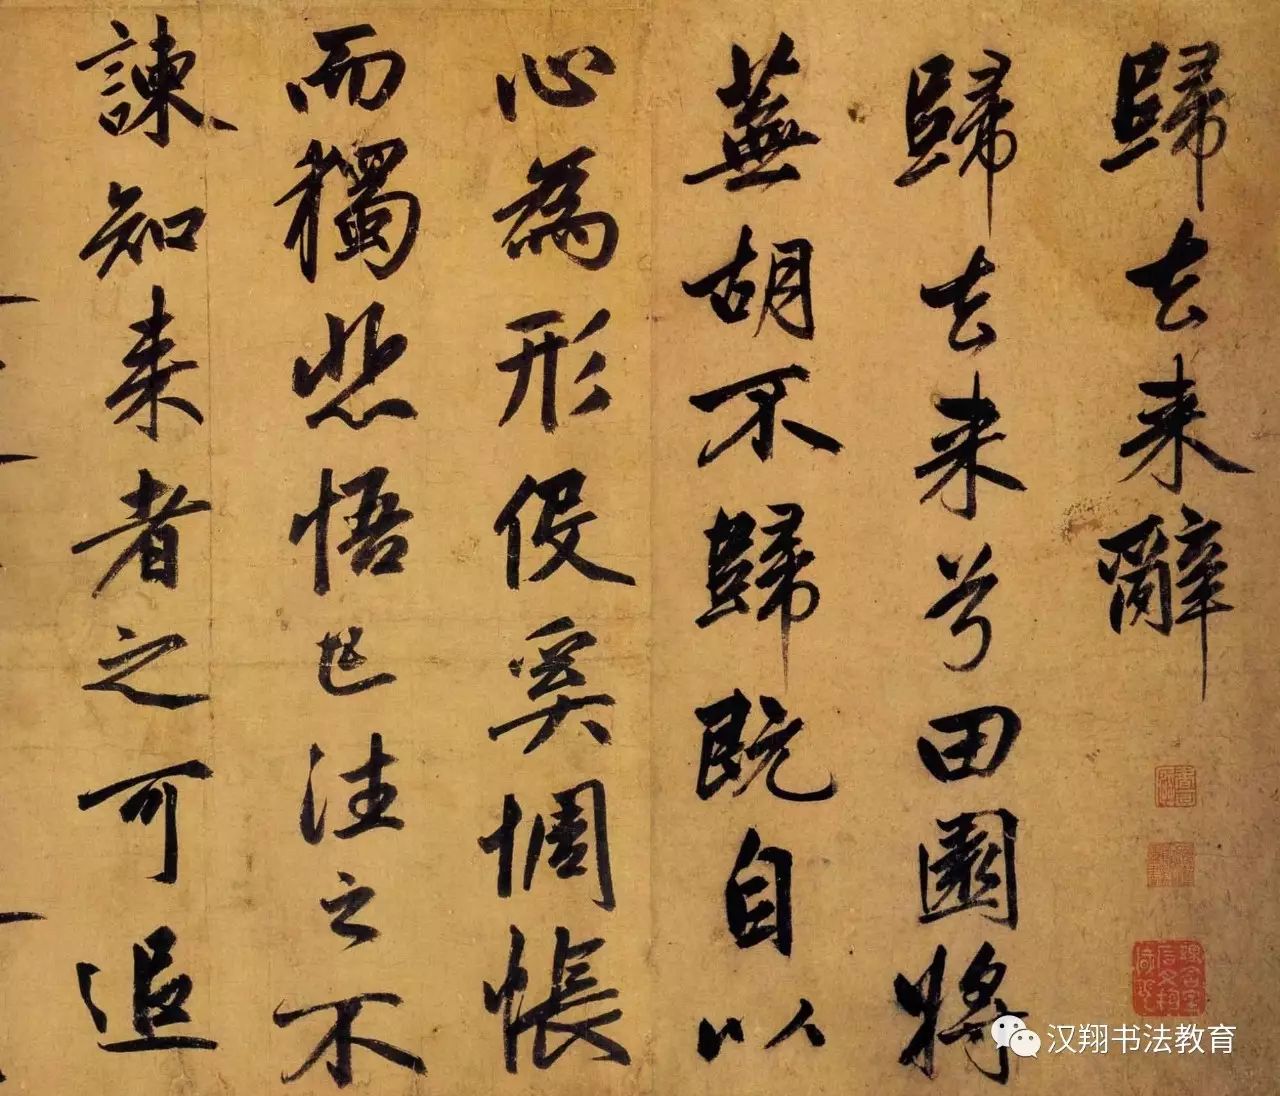 歸去来辭
歸去来兮田園將
蕪胡不歸既自以
心為形役奚惆悵
而獨悲悟已往之不
諫知来者之可追
汉翔书法教育